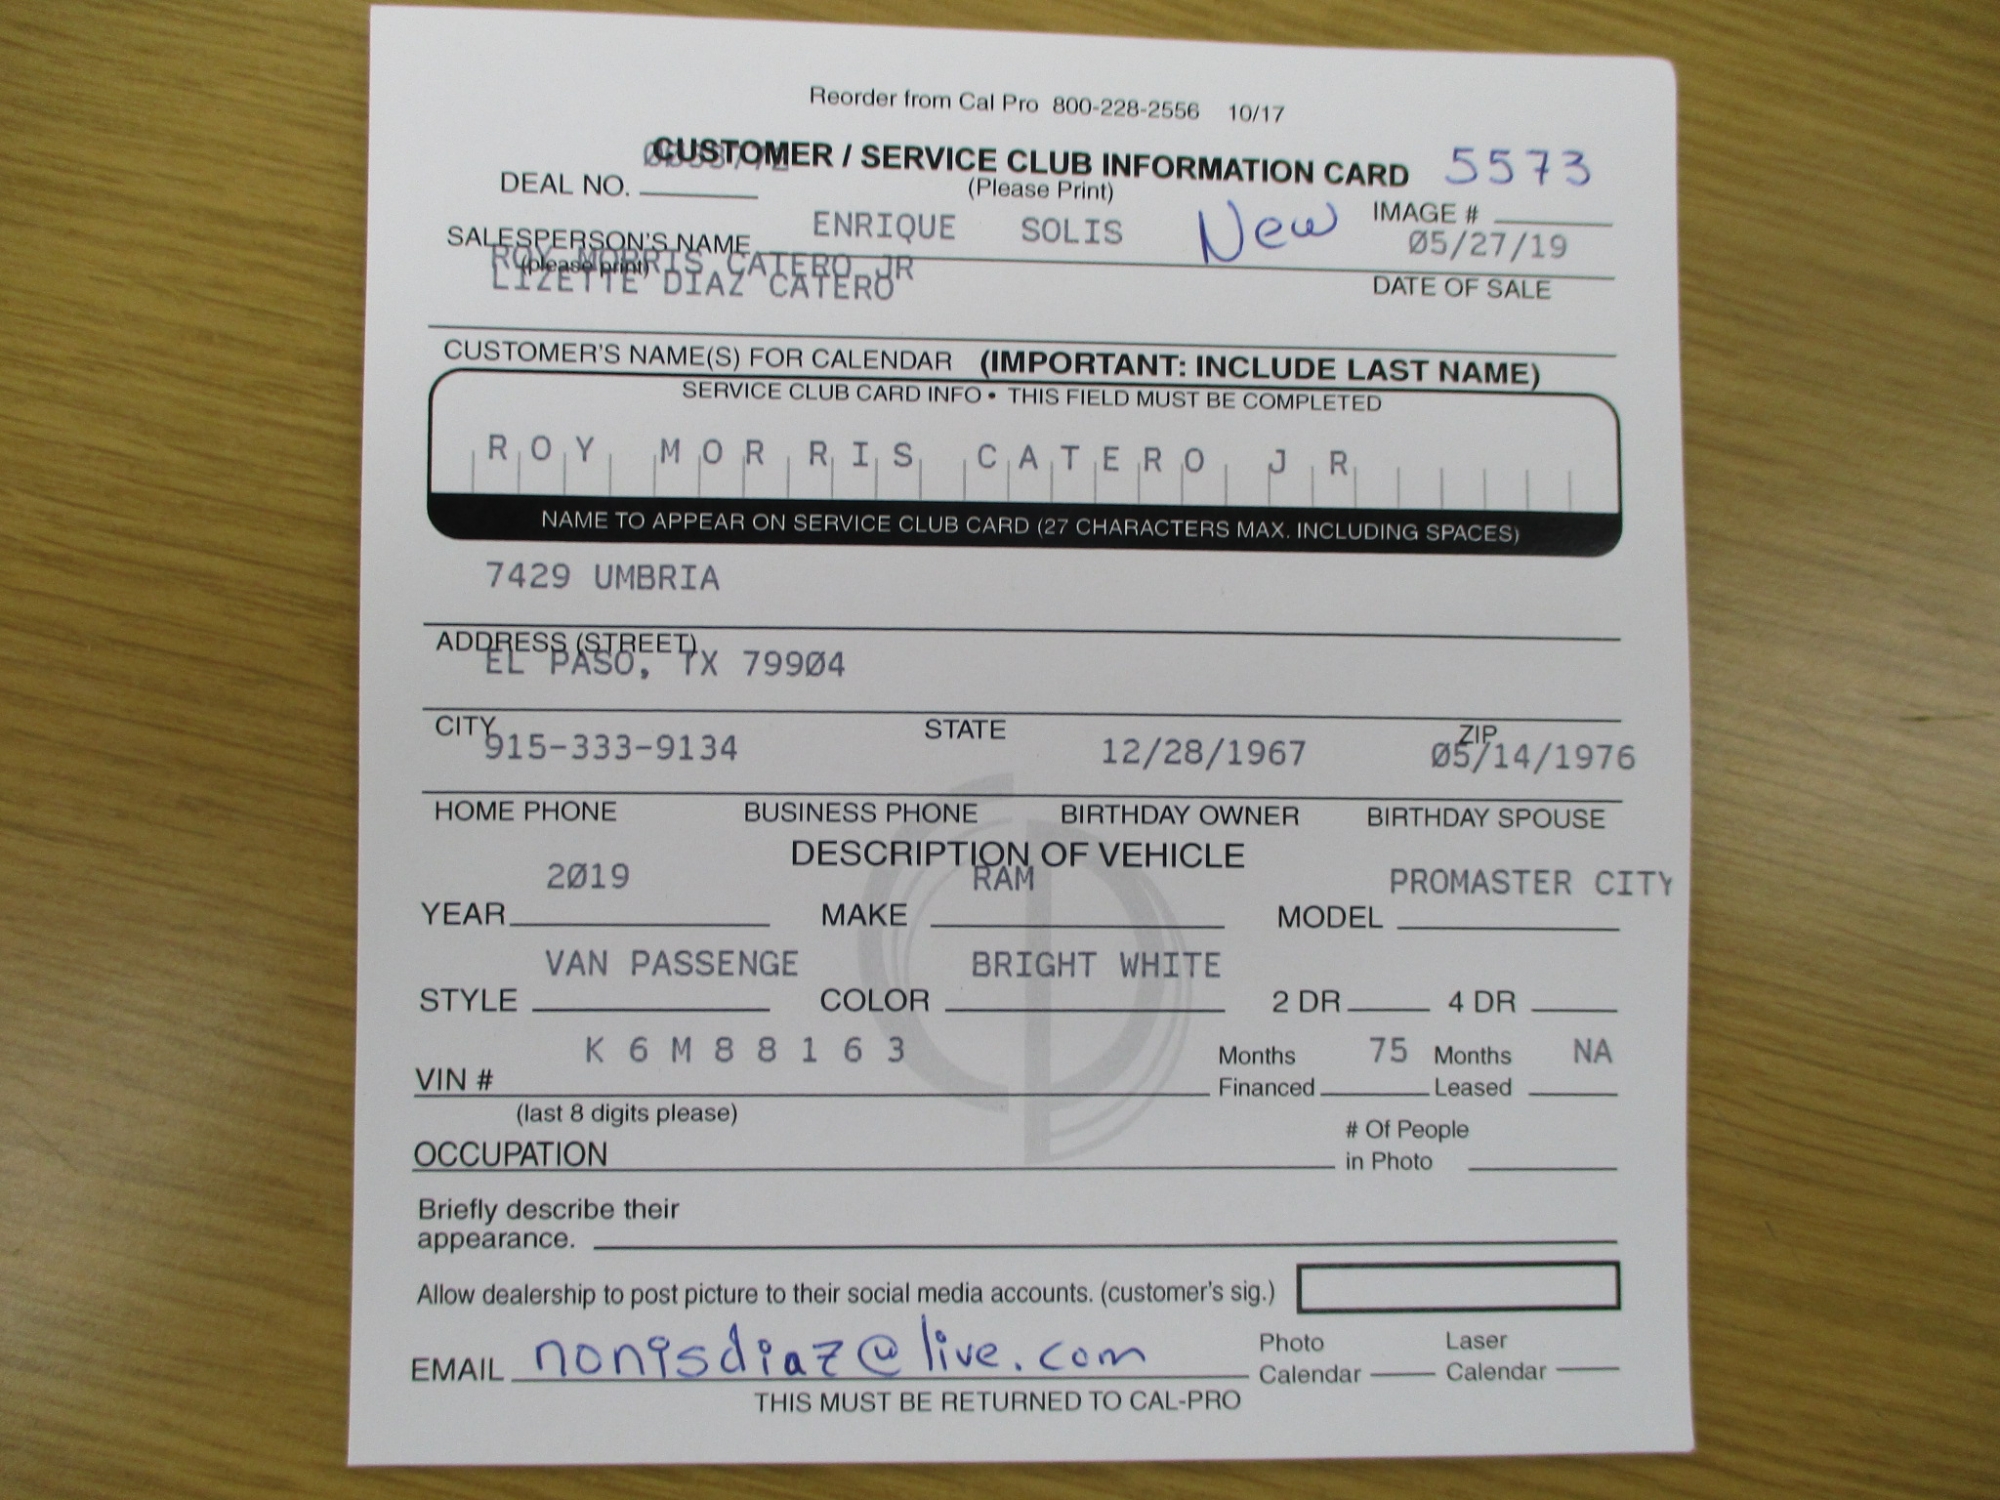 Reorder from Cal Pro 800-228-2556 10/17
CUSTOMER / SERVICE CLUB INFORMATION CARD 5573
DEAL NO. (Please Print)
IMAGE #
SALESPERSON'S NAME ENRIQUE SOLIS New 05/27/19
(please print) ROY MORRIS CATERO JR
LIZETTE DIAZ CATERO DATE OF SALE
CUSTOMER'S NAME(S) FOR CALENDAR (IMPORTANT: INCLUDE LAST NAME)
SERVICE CLUB CARD INFO • THIS FIELD MUST BE COMPLETED
ROY MORRIS CATERO JR
NAME TO APPEAR ON SERVICE CLUB CARD (27 CHARACTERS MAX. INCLUDING SPACES)
7429 UMBRIA
ADDRESS (STREET)
EL PASO, TX 79904
CITY STATE ZIP
915-333-9134 12/28/1967 05/14/1976
HOME PHONE BUSINESS PHONE BIRTHDAY OWNER BIRTHDAY SPOUSE
DESCRIPTION OF VEHICLE
2019 RAM PROMASTER CITY
YEAR MAKE MODEL
VAN PASSENGE BRIGHT WHITE
STYLE COLOR 2 DR 4 DR
K6M88163 Months 75 Months NA
VIN # Financed Leased
(last 8 digits please)
# Of People
OCCUPATION in Photo
Briefly describe their
appearance.
Allow dealership to post picture to their social media accounts. (customer's sig.)
Photo Laser
EMAIL nonisdiaz@live.com Calendar Calendar
THIS MUST BE RETURNED TO CAL-PRO